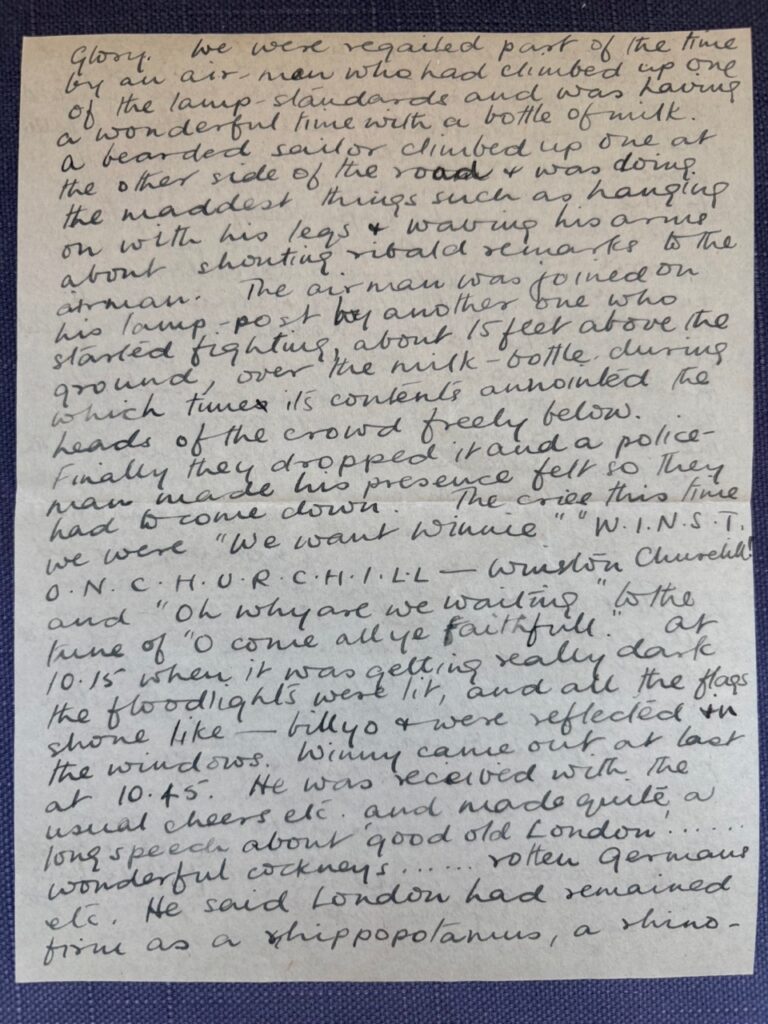 Glory. We were regailed part of the time
by an air-man who had climbed up one
of the lamp-standards and was having
a wonderful time with a bottle of milk.
A bearded sailor climbed up one at
the other side of the road & was doing
the maddest things such as hanging
on with his legs & waving his arms
about shouting ribald remarks to the
airman. The airman was joined on
his lamp-post by another one who
started fighting, about 15 feet above the
ground, over the milk-bottle during
which time its contents annointed the
heads of the crowd freely below.
Finally they dropped it and a police-
man made his presence felt so they
had to come down. The cries this time
we were "We want Winnie" "W.I.N.S.T.
O.N. C.H.U.R.C.H.I.L.L — Winston Churchill!
and "Oh why are we waiting" to the
tune of "O come all ye faithfull." At
10.15 when it was getting really dark
the floodlights were lit, and all the flags
shone like — billyo & were reflected in
the windows. Winny came out at last
at 10.45. He was received with the
usual cheers etc. and made quite a
long speech about 'good old London'......
wonderful cockneys...... rotten Germans
etc. He said London had remained
firm as a hippopotamus, a rhino-